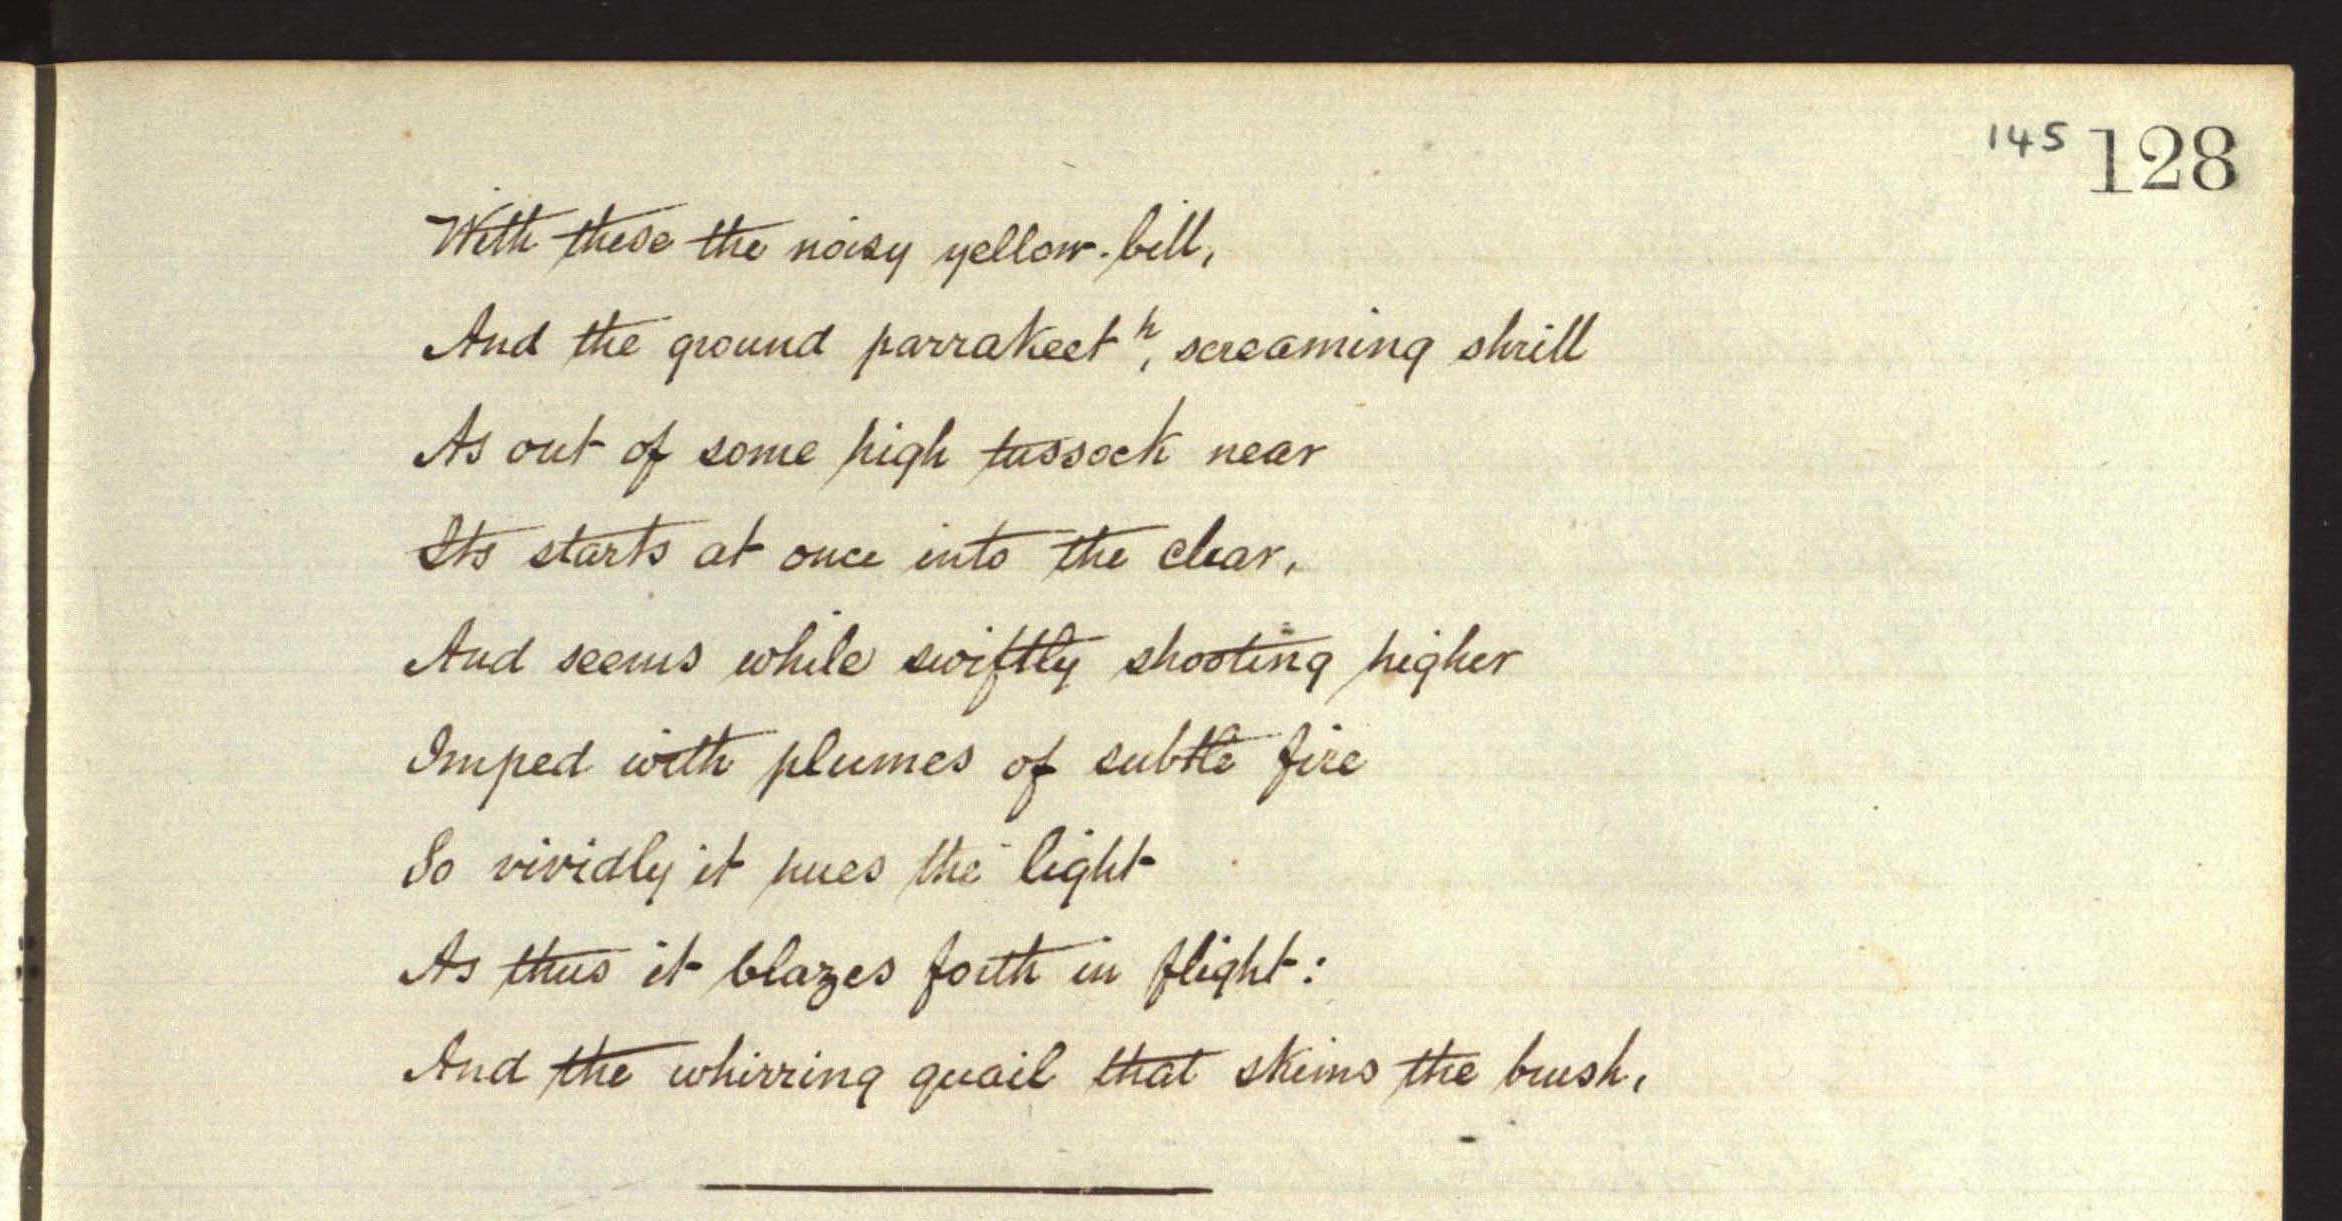 145 128
With these the noisy yellow-bill,
And the ground parrakeet h, screaming shrill
As out of some high tussock near
Its starts at once into the clear,
And seems while swiftly shooting higher
Imped with plumes of subtle fire
So vividly it hues the light
As thus it blazes forth in flight:
And the whirring quail that skims the brush,